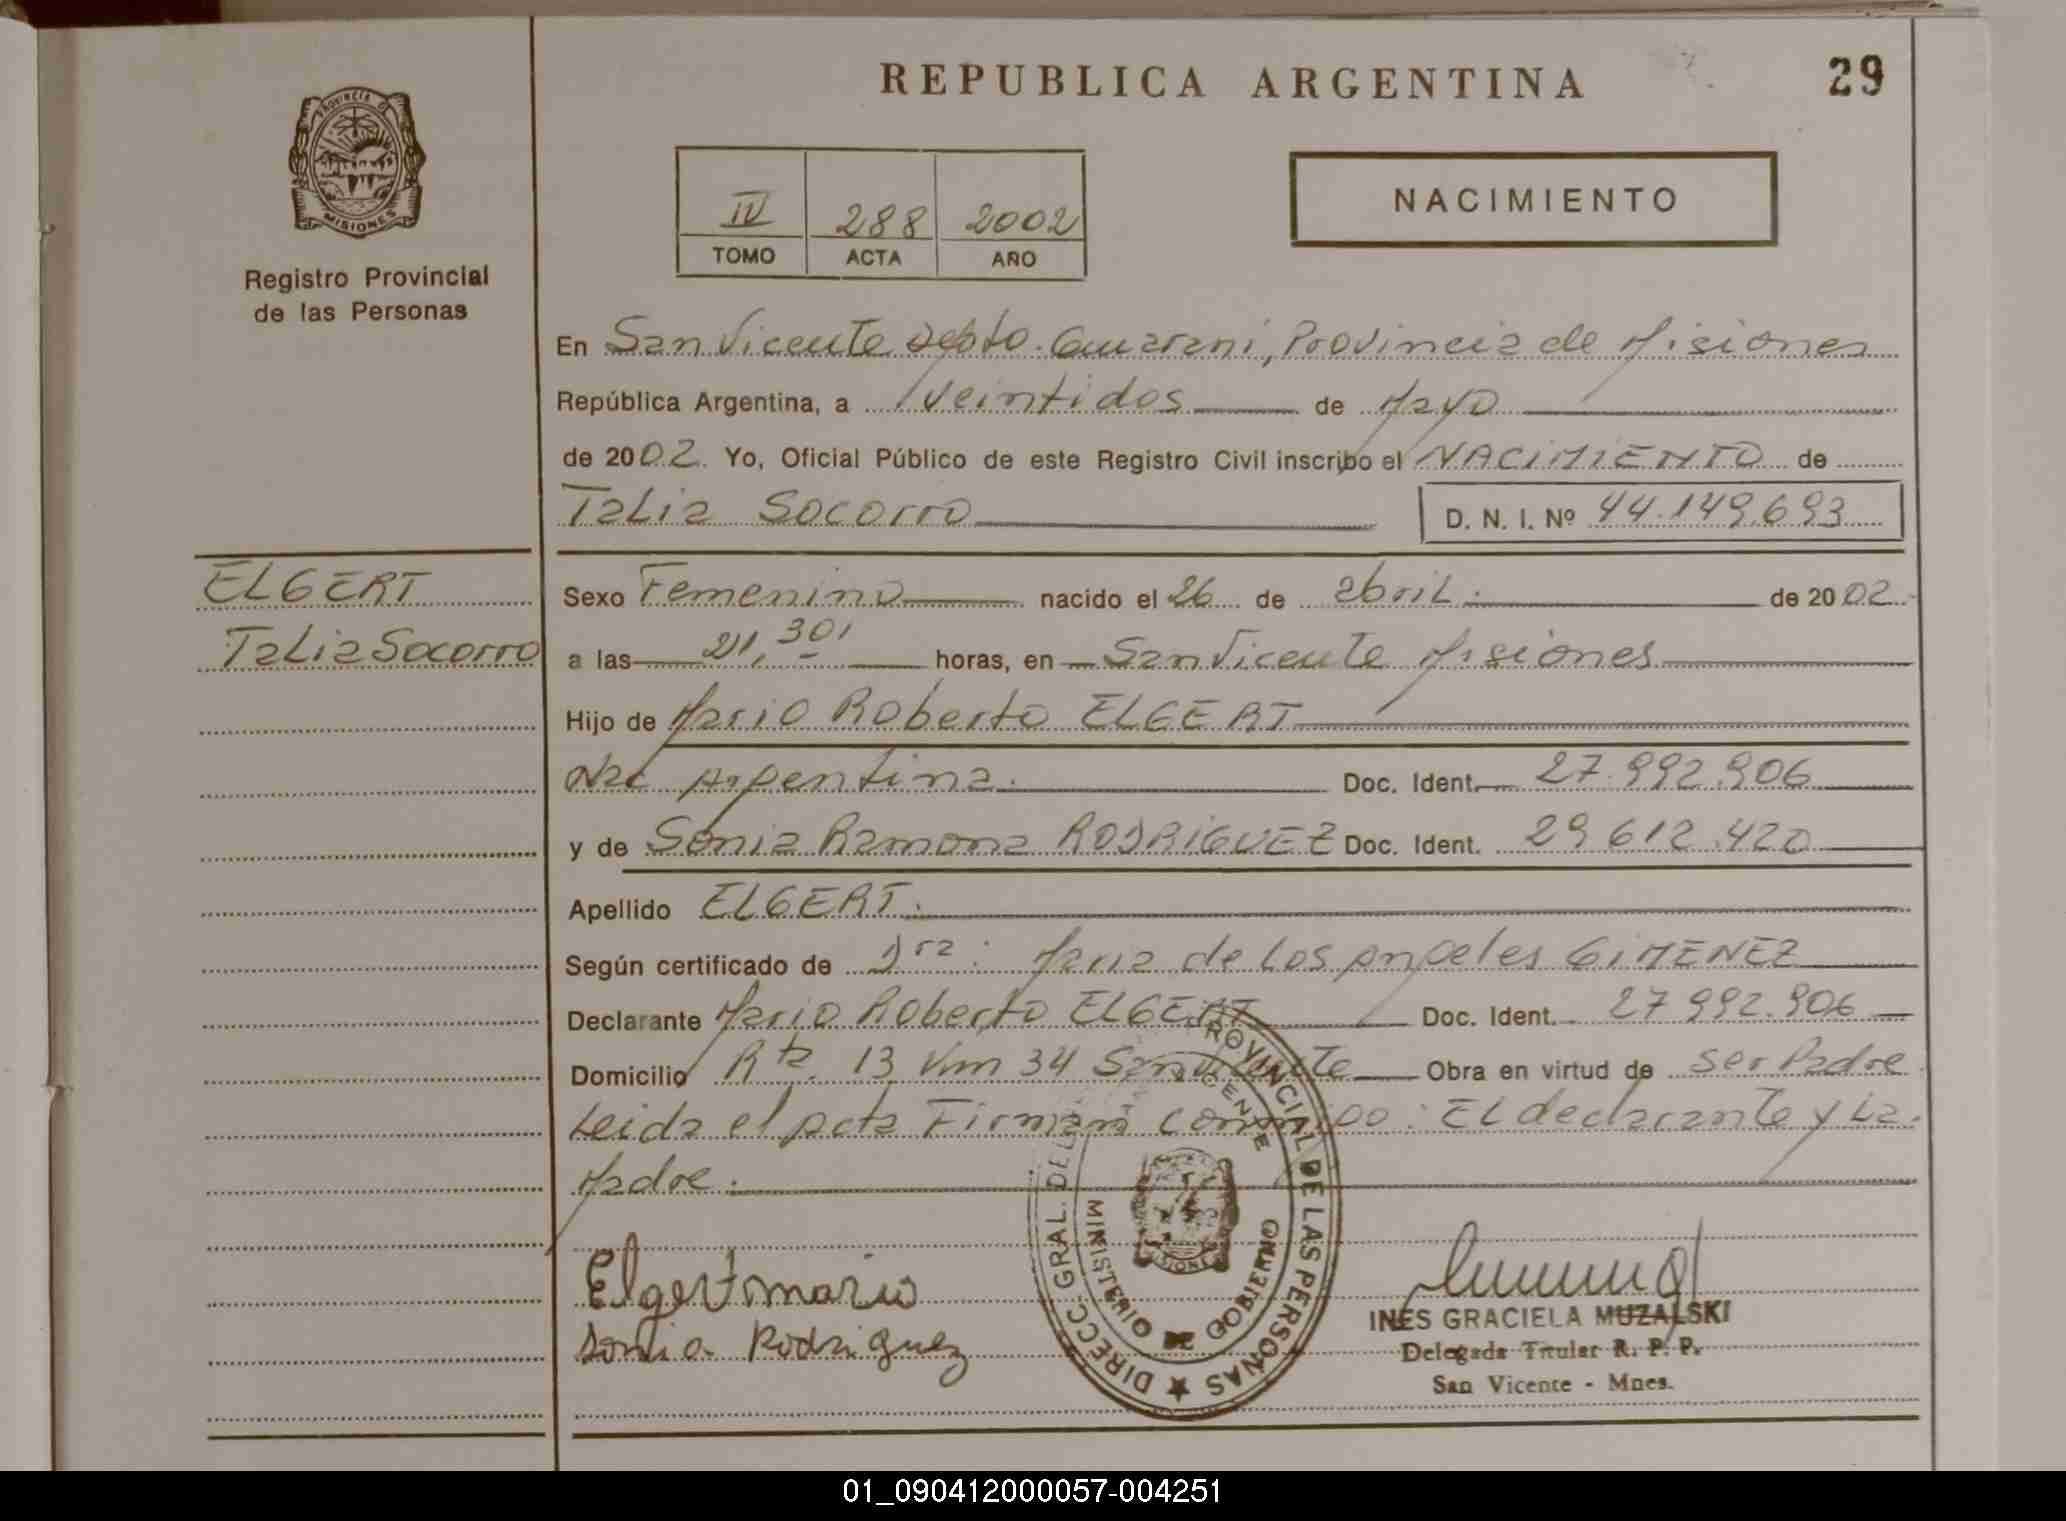 REPUBLICA ARGENTINA
29
PROVINCIA D
MISIONES
Registro Provincial
de las Personas
IV 288 2002
TOMO ACTA AÑO
NACIMIENTO
En San Vicente Depto. Guarani, Provincia de Misiones
República Argentina, a veintidos de Mayo
de 2002. Yo, Oficial Público de este Registro Civil inscribo el NACIMIENTO de
Talia Socorro D. N. I. Nº 44.149.693
ELGERT
Talia Socorro
Sexo Femenino nacido el 26 de abril. de 2002
a las 21,30, horas, en San Vicente Misiones
Hijo de Mario Roberto ELGERT
Nac Argentina. Doc. Ident. 27.992.906
y de Sonia Ramona RODRIGUEZ Doc. Ident. 29 612.420
Apellido ELGERT.
Según certificado de Dra: Maria de Los Angeles GIMENEZ
Declarante Mario Roberto ELGERT Doc. Ident. 27 992.906
Domicilio Rta. 13 Km 34 San Vicente Obra en virtud de ser Padre
Leida el Acta Firman conmigo: El declarante y La
Madre.
Elgert mario
Sonia Rodriguez
DIRECC. GRAL. DEL ROVINCIAL DE LAS PERSONAS
MINISTERIO DE GOBIERNO
INES GRACIELA MUZALSKI
Delegada Titular R. P. P.
San Vicente - Mnes.
01_090412000057-004251